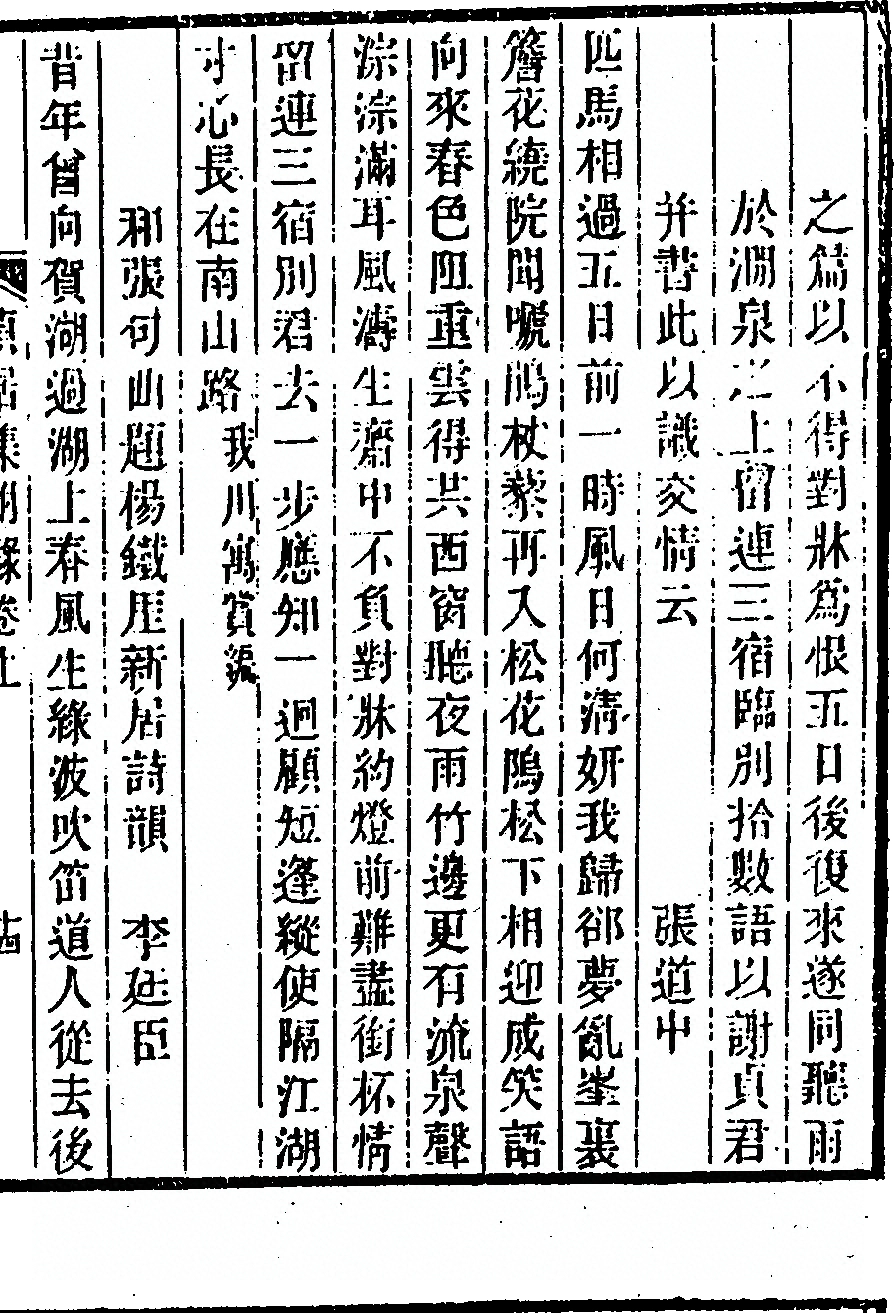 之篇以不得對牀爲恨五日後復來遂同聽雨
於澗泉之上留連三宿臨別拾數語以謝貞君
并書此以識交情云 張道中
匹馬相過五日前一時風日何清妍我歸卻夢亂峯裏
簷花繞院聞嗁鵑杖藜再入松花隖松下相迎成笑語
向來春色阻重雲得共西窗聽夜雨竹邊更有流泉聲
淙淙滿耳風濤生齋中不負對牀約燈前難盡銜杯情
留連三宿別君去一步應知一迴顧短蓬縱使隔江湖
寸心長在南山路 我川寓賞編
和張句曲題楊鐵厓新居詩韻 李廷臣
昔年曾向賀湖過湖上春風生綠波吹笛道人從去後
貞居集附錄卷上